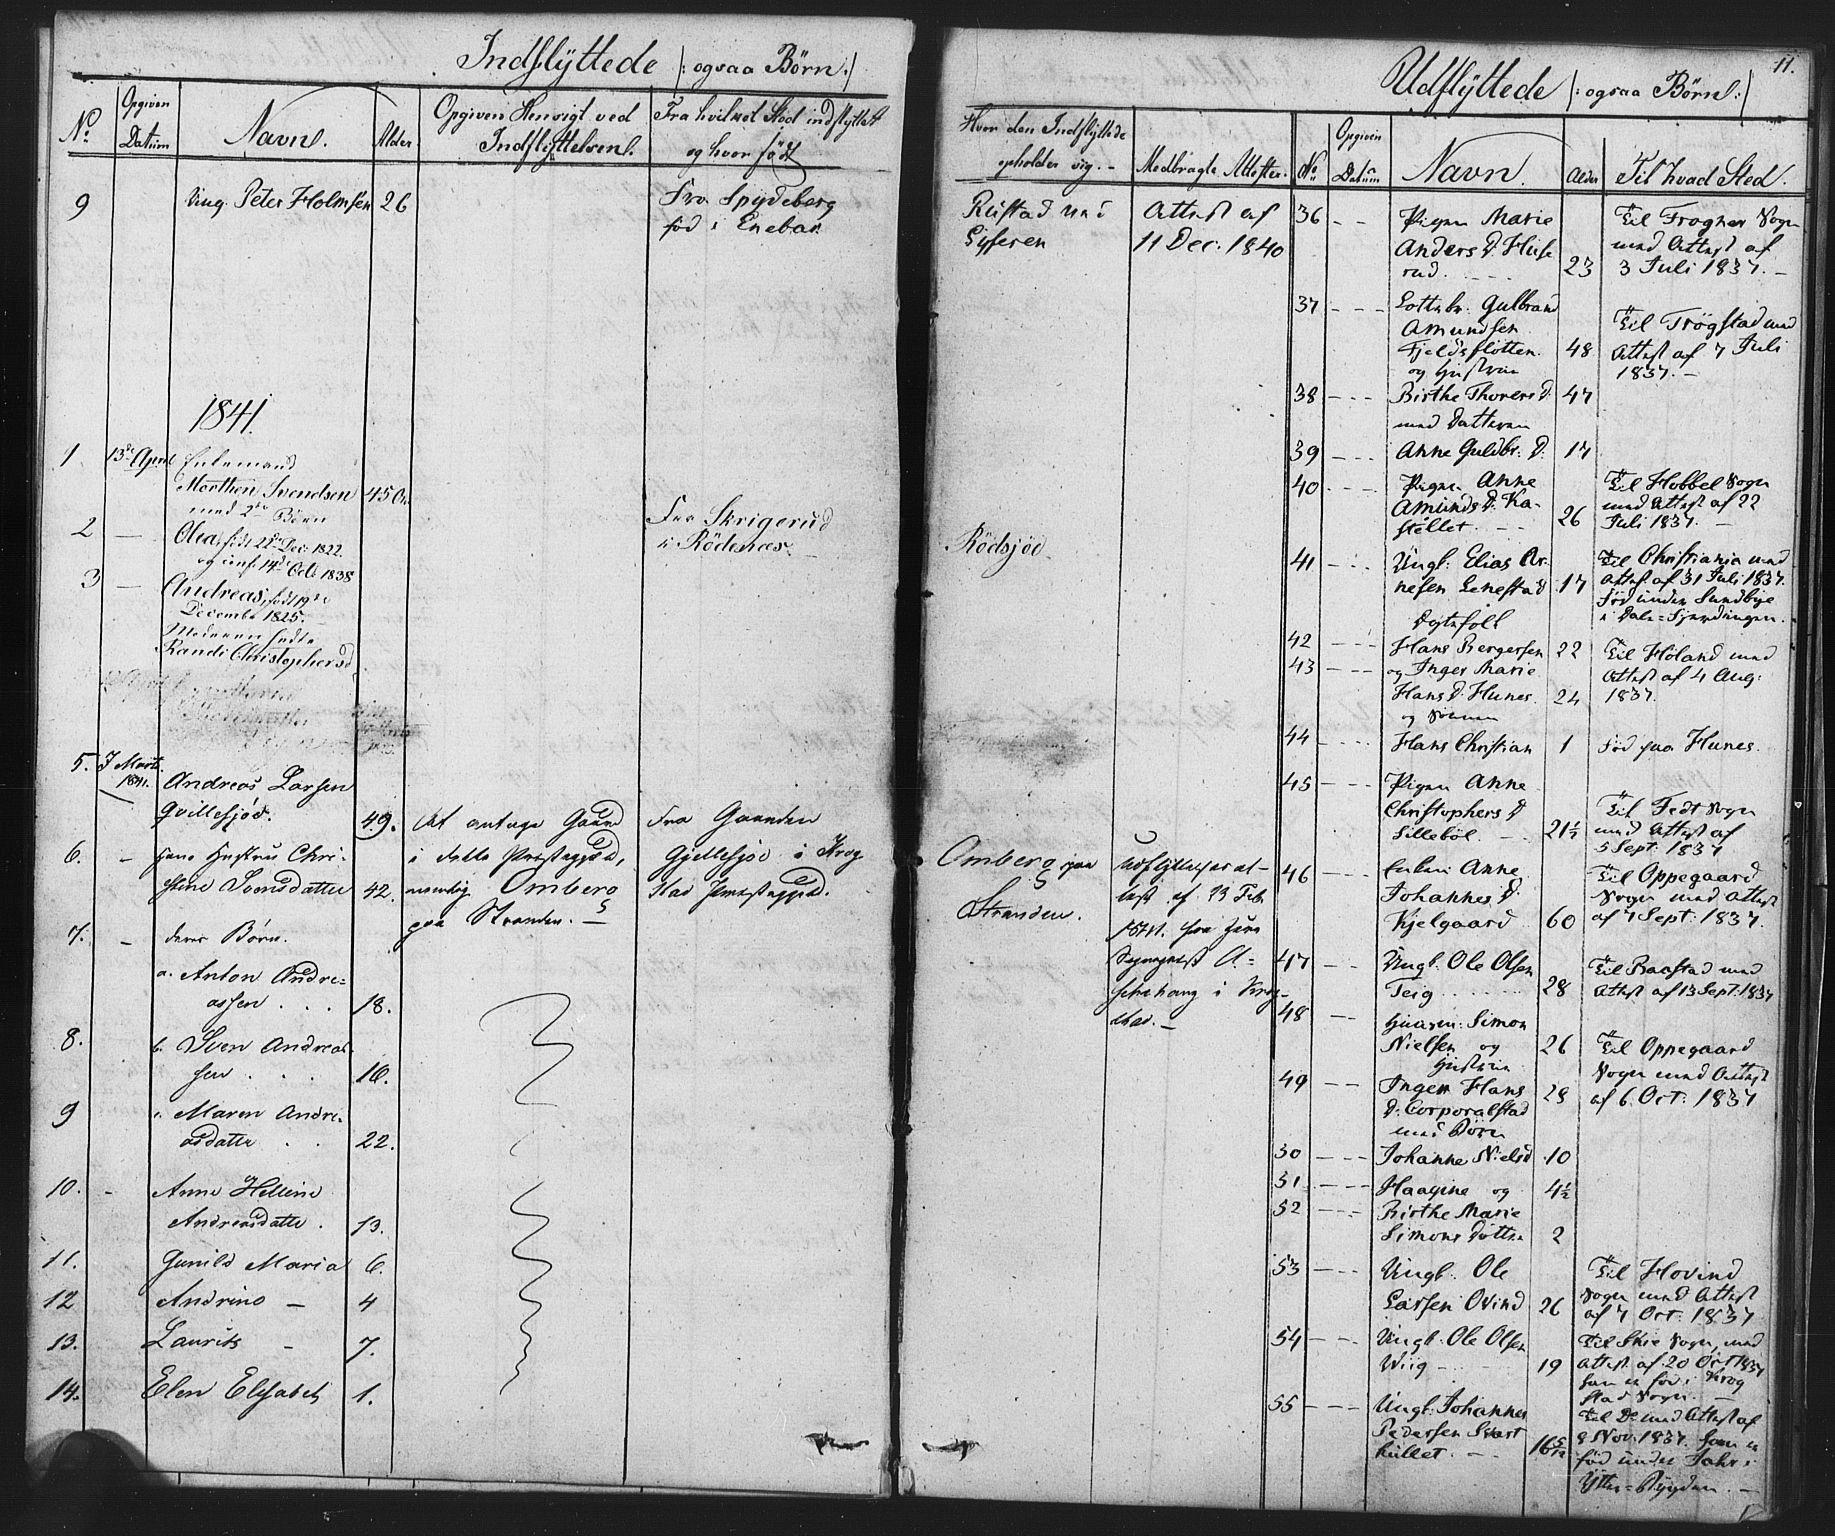 Indflyttede |: ogsaa Børn :|
No
Opgiven Datum
Navn.
Alder
Opgiven Hensigt ved Indflyttelsen.
Fra hvilket Sted indflyttet og hvor født
9
Ung. Peter Holmsen 26
Fra Spydeberg
fød i Enebak
1841.
1. 13de April Enkemand
Morthen Svendsen 45
med 2de Børn
2 — Olea, født 22 Dec: 1822.
og conf. 14de Oct: 1838
Fra Skrigerud
i Rødenæs.
3 — Andreas, født 19de
December 1825.
Moderen hedte
Randi Christophersd
5. 7 Marts 1841. Andreas Larsen
Gjellesjød. 49.
At antage Gaard
i dette Præstegjæld,
nemlig Omberg
paa Stranden.
Fra Gaarden
Gjellesjød i Krog
stad Præstegjæld.
6. — hans Hustrue Chri-
stine Svensdatter 42.
7. — deres Børn.
a. Anton Andre-
assen . . . 18.
8. b. Sven Andreas-
sen . . . 16.
9 c. Maren Andre-
asdatter . . 22.
10. - Anne Helline
Andreasdatter . 13.
11. Gunild Maria 6.
12 Andrine — 4
13. Laurits - 7.
14. Elen Elisabet 1.
Udflyttede |: ogsaa Børn :|
11.
Hvor den Indflyttede opholder sig. -
Medbragte Attester.
No
Opgiven Datum
Navn.
Alder
Til hvad Sted.
Rustad ved
Eyeren
Attest af
11 Dec: 1840
Rødsjøe
Omberg paa
Stranden.
Udflyttelsesat-
test af 23 Feb
1841. fra
Sognepræst A=
schehoug i Krog-
stad. —
36 - - Pigen Marie
Anders D. Huse
rud. . . . 23
Til Frogner Sogn
med Attest af
3 Juli 1837. —
37 - - - Gulbrand
Amundsen
Fjeldsflotten. 48
og Hustrue
Til Trøgstad med
Attest af 7 Juli
1837. —
38 - - - Birthe Thorers D. 47
med Datteren
39 - - - Anne Guldbr: D. 17
40 - - - Pigen Anne
Amunds D. Ka-
stellet. - - 26
Til Hobbel Sogn
med Attest af 22
Juli 1837. —
41 - - - Ungk: Elias Ar-
nesen Lenestad 17
Til Christiania med
Attest af 31 Juli 1837.
Fød under Sundbye
i Dale=Fjerdingen.
Egtefolk
42 - - - Hans Bergersen 22
43 - - - og Inger Marie
Hans D. Hunes. 24
og Sønnen
Til Høland med
Attest af 4 Aug:
1837.
44 - - - Hans Christian 1
Fød paa Hunes.
45 - - - Pigen Anne
Christophers D
Lillebøl - - 21½
Til Fedt Sogn
med Attest af
5 Sept: 1837
46 - - Enken Anne
Johannes D.
Kjelgaard 60
Til Oppegaard
Sogn med Attest
af 7 Sept: 1837.
47 - - Ungk. Ole Olsen
Teig . . . . 28
Til Raastad med
Attest af 13 Sept: 1837
48 — Huusm: Simon
Nielsen og 26
Hustrue
Til Oppegaard
Sogn med Attest
af 6 Oct: 1837
49 - - Inger Hans 28
D. Corporalstad
med Børn
50 - - - Johanne Nielsd 10
51 - - - Haagine og 4½
52 - - - Birthe Marie
Simons Døttre 2
53 - - - Ungk: Ole
Larsen Ovind 26
Til Hovind
Sogn med Attest
af 7 Oct: 1837
54 - - - Ungk: Ole Olsen
Wiig - . . . 19
Til Skie Sogn, med
Attest af 20 Oct 1837
han er fød i Krog
stad Sogn. —
55 - - - Ungk: Johannes
Pedersen Svart
hullet. - — 16 5/12
Til Do med Attest af
8 Nov: 1837. han er
fød under Jahr i
Ytter=Bygden. —